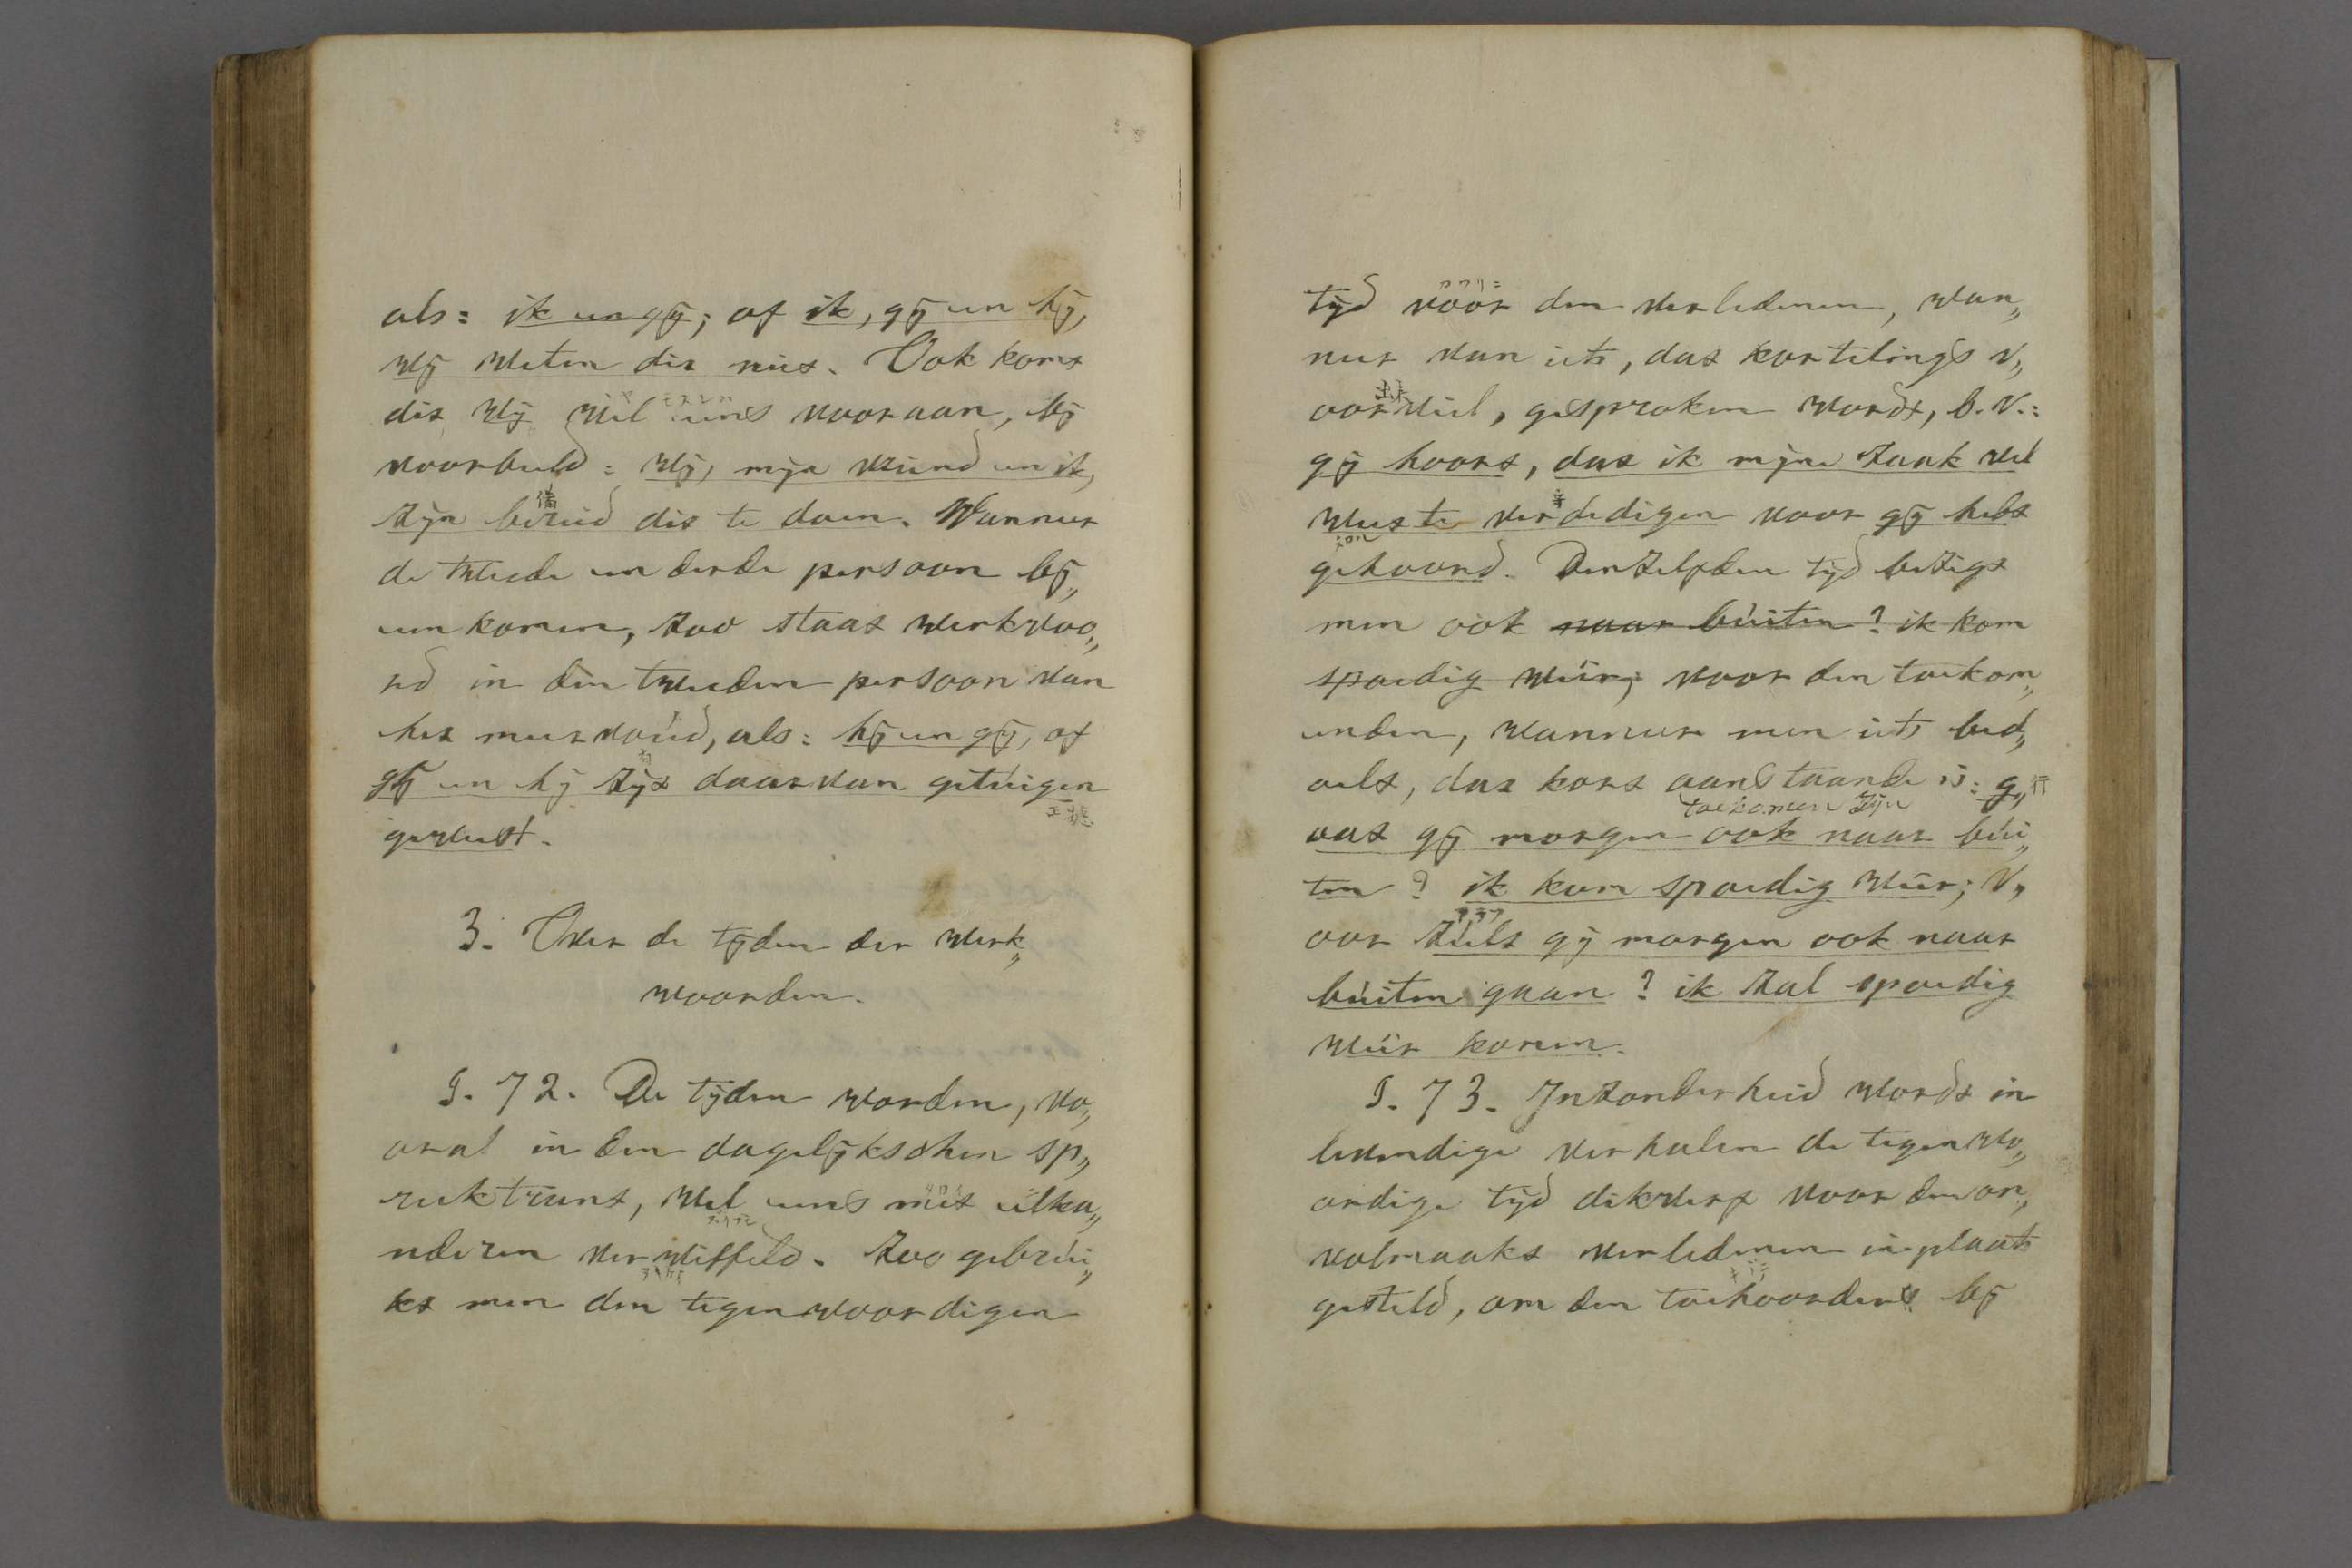 als: ik en gij; of ik, gij en hij,
wij weten dit niet. Ook komt
dit wij wel eens vooraan, bij
voorbeeld: wij, mijn vriend en ik,
zijn bereid dit te doen. Wanneer
de tweede en derde persoon bij„
een komen, zoo staat werkwoo„
rd in den tweeden persoon van
het meervoud, als: hij en gij, of
gij en hij zijt daarvan getuigen
geweest.
3. Over de tijden der werk„
woorden.
§. 72. De tijden worden, vo„
oral in den dagelijkschen sp„
reektrant, wel eens met elka„
nderen verwisseld. Zoo gebrui„
kt men den tegenwoordigen
tijd vóór den verledenen, wan„
neer van iets, dat kortelings v„
oorviel, gesproken wordt, b. v.:
gij hoort, dat ik mijne zaak wel
weet te verdedigen voor gij hebt
gehoord. Denzelfden tijd bezigt
men ook naar buiten? ik kom
spoedig weêr; voor den toekom„
enden, wanneer men iets bed„
oelt, dat kort aanstaande is: g„
toekomen zijn
aat gij morgen ook naar bui„
ten? ik kom spoedig weêr; v„
oor zult gij morgen ook naar
buiten gaan? ik zal spoedig
weêr komen.
§. 73. Inzonderheid wordt in
levendige verhalen de tegenwo„
ordige tijd dikwerf voor den on„
volmaakt verledenen in plaats
gesteld, om den toehoorders bij